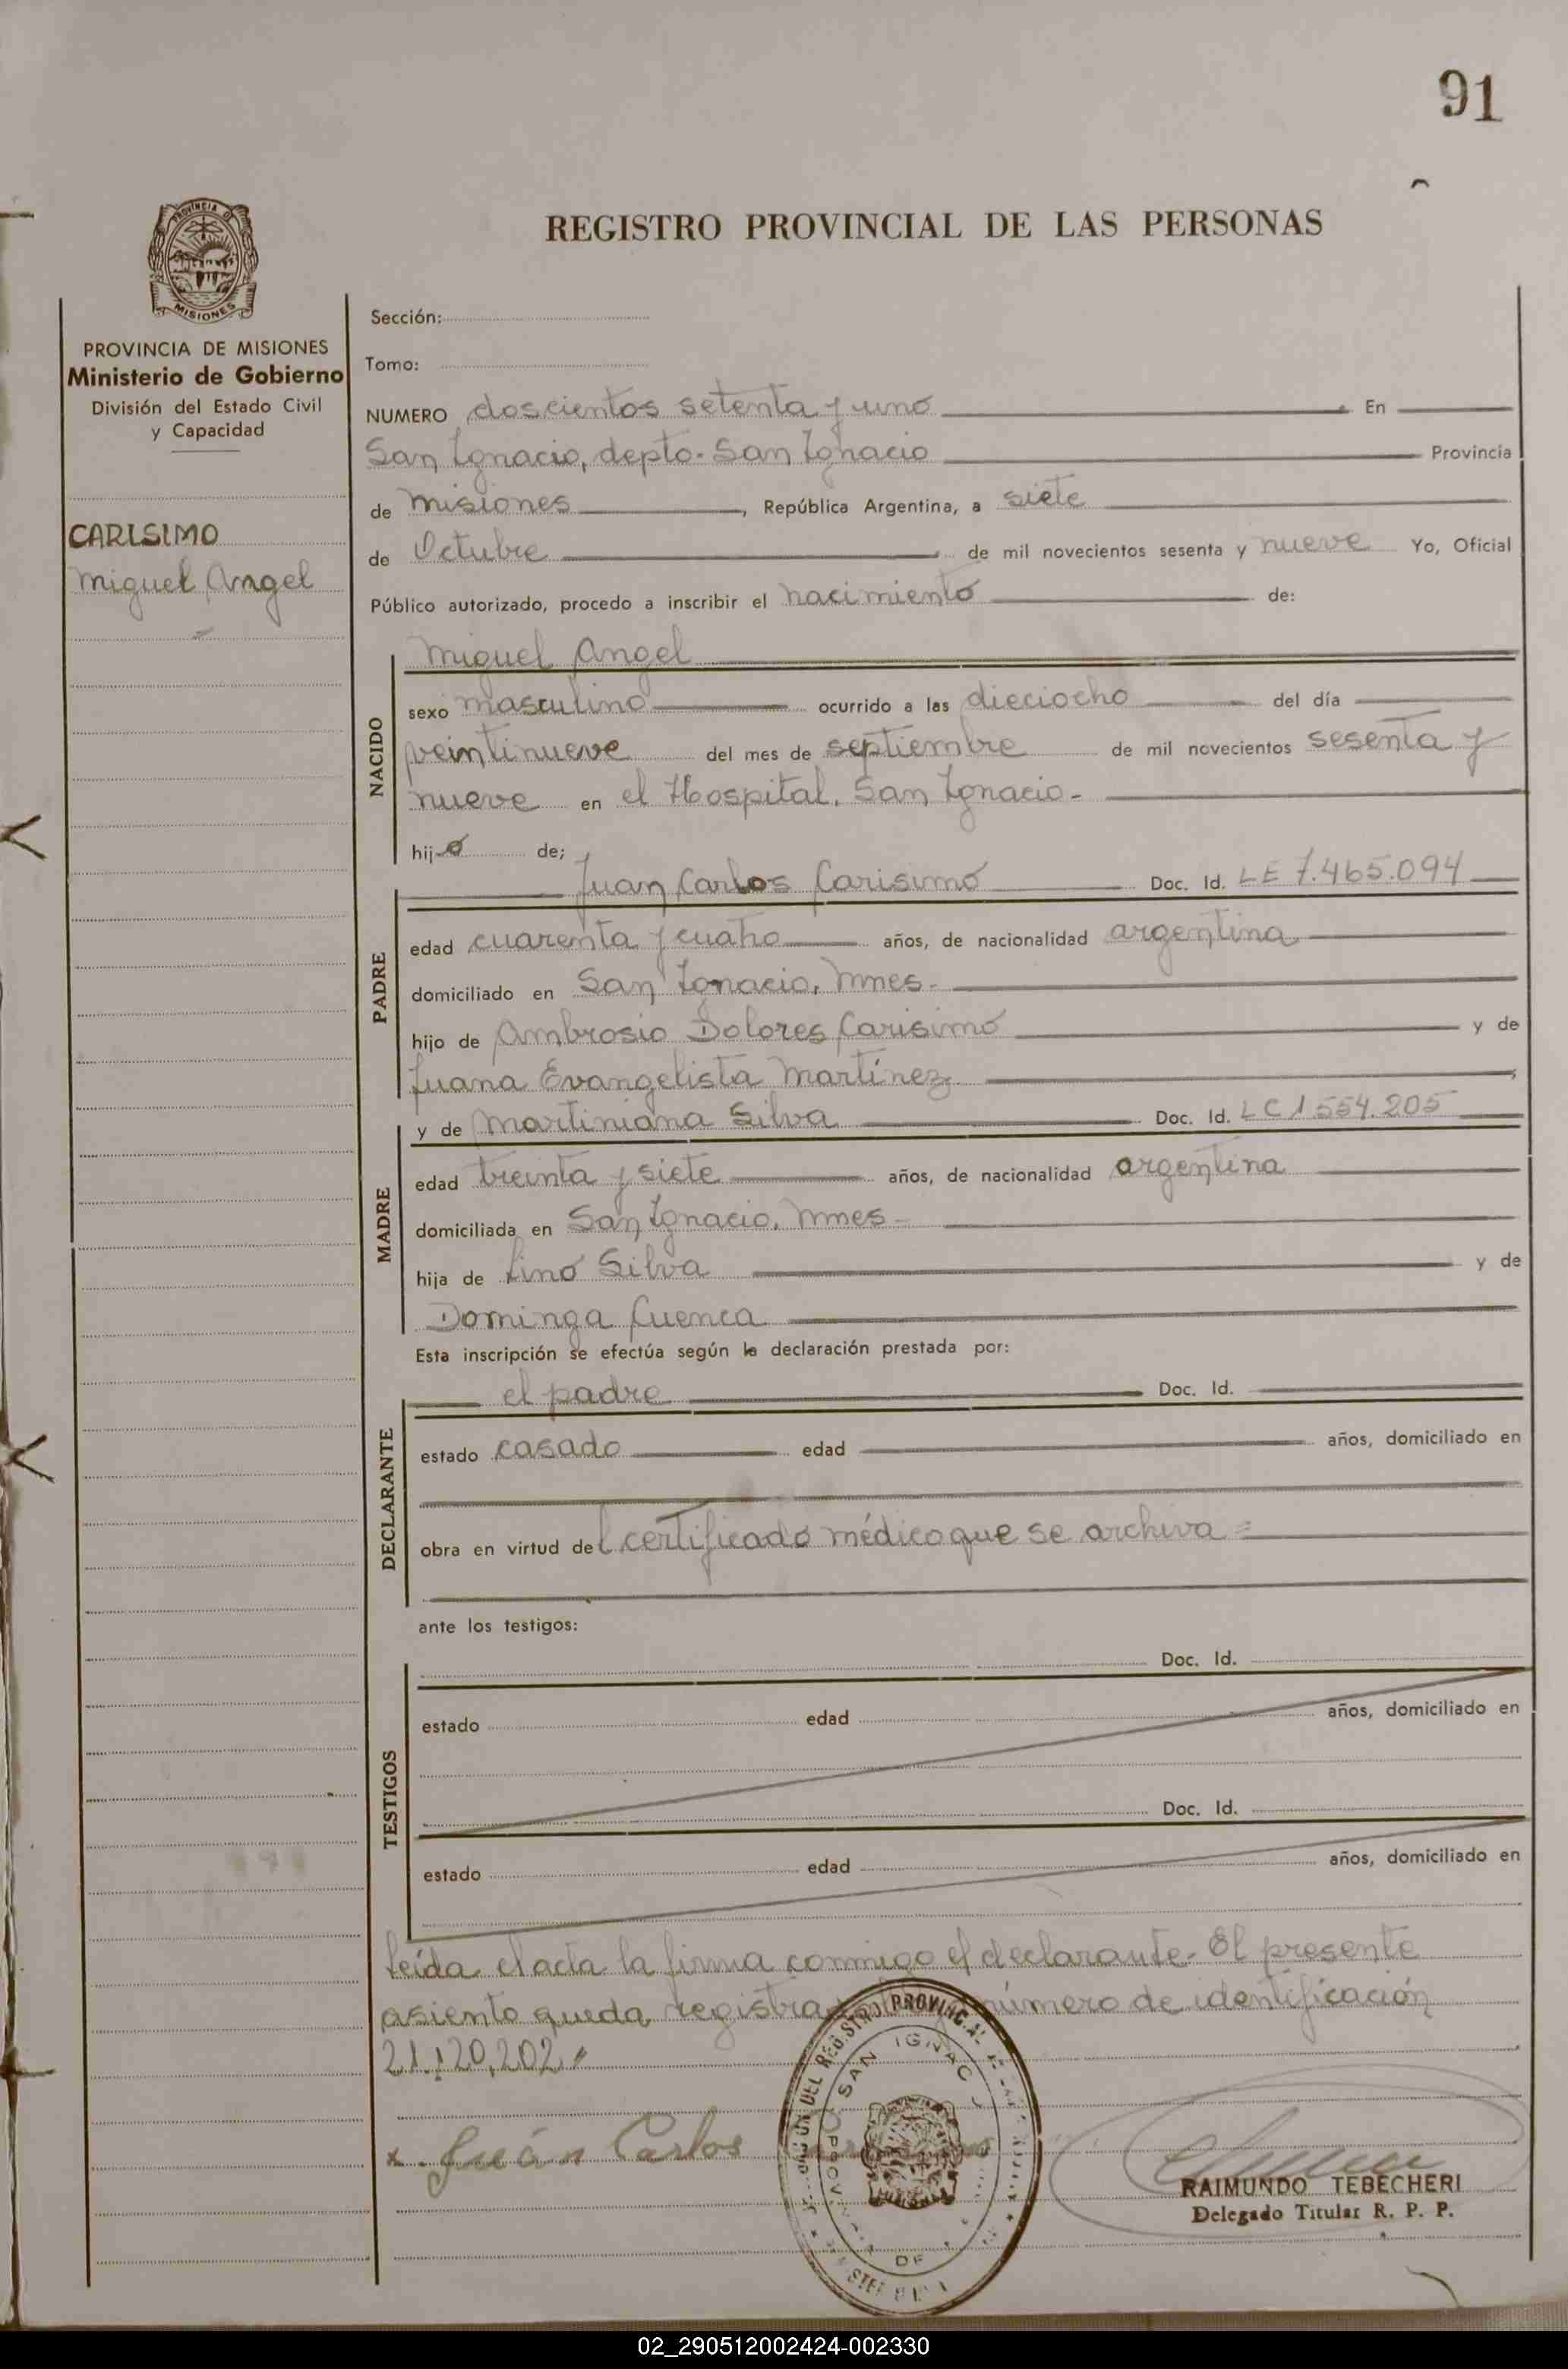 91
REGISTRO PROVINCIAL DE LAS PERSONAS
PROVINCIA DE
MISIONES
PROVINCIA DE MISIONES
Ministerio de Gobierno
División del Estado Civil
y Capacidad
CARISIMO
Miguel Angel
Sección:
Tomo:
NUMERO doscientos setenta y uno En
San Ignacio, depto. San Ignacio Provincia
de Misiones, República Argentina, a siete
de Octubre de mil novecientos sesenta y nueve Yo, Oficial
Público autorizado, procedo a inscribir el nacimiento de:
NACIDO
Miguel Angel
sexo masculino ocurrido a las dieciocho del día
veintinueve del mes de septiembre de mil novecientos sesenta y
nueve en el Hospital, San Ignacio-
hijo de;
PADRE
Juan Carlos Carisimo Doc. Id. LE 7.465.094
edad cuarenta y cuatro años, de nacionalidad argentina
domiciliado en San Ignacio, Mnes-
hijo de Ambrosio Dolores Carisimo y de
Juana Evangelista Martínez;
MADRE
y de Martiniana Silva Doc. Id. LC 1.554.205
edad treinta y siete años, de nacionalidad argentina
domiciliada en San Ignacio, Mnes-
hija de Lino Silva y de
Dominga Cuenca
Esta inscripción se efectúa según la declaración prestada por:
DECLARANTE
el padre Doc. Id.
estado casado edad años, domiciliado en
obra en virtud del certificado médico que se archiva =
ante los testigos:
TESTIGOS
Doc. Id.
estado edad años, domiciliado en
Doc. Id.
estado edad años, domiciliado en
Leída el acta la firma conmigo el declarante- El presente
asiento queda número de identificación
21.120.202
DEL REGISTRO PROVINCIAL
SAN IGNACIO
DE
x. Juán Carlos
RAIMUNDO TEBECHERI
Delegado Titular R. P. P.
02_290512002424-002330